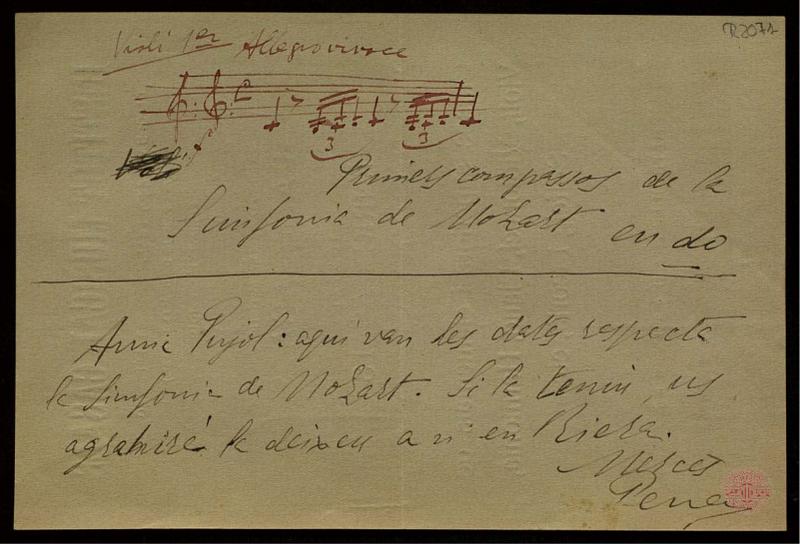 R2071
Violí 1er Allegro vivace
3 3
Primers compassos de la
Simfonia de Mozart en do
Amic Pujol: aquí van les dates respecte
la Simfonia de Mozart. Si la teniu, us
agrairé la deixeu a n'en Riera.
Mercès